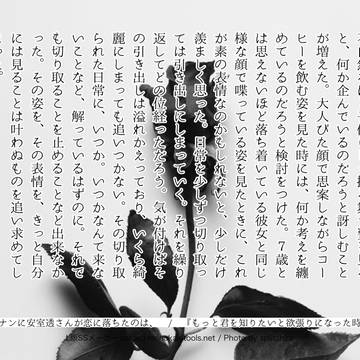 と、何か企んでいるのだろうと訝しむこと
が増えた。大人びた顔で思案しながらコー
ヒーを飲む姿を見た時には、何か考えを纏
めているのだろうと検討をつけた。７歳と
は思えないほど落ち着いている彼女と同じ
様な顔で喋っている姿を見たときに、これ
が素の表情なのかもしれない、と、少しだけ
羨ましく思った。日常を少しずつ切り取っ
ては引き出しにしまっていく。それを繰り
返してどの位経っただろう。気が付けばそ
の引き出しは溢れかえっており、いくら綺
麗にしまっても追いつかない。その切り取
られた日常に、いつか。いつかなんて来な
いことなど、解っているはずのに。それで
も切り取ることを止めることなど出来なか
った。その姿を、その表情を、きっと自分
には見ることは叶わぬものを追い求めてし
ナンに安室透さんが恋に落ちたのは、 / 『もっと君を知りたいと欲張りになった時